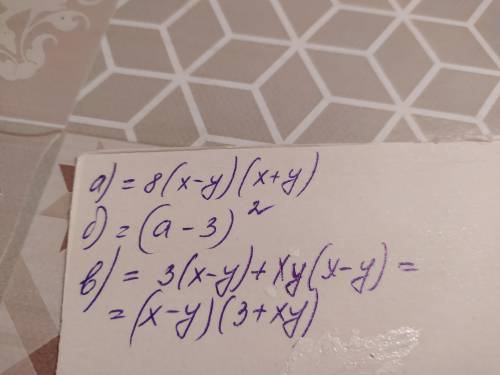 а) = 8(x-y)(x+y)
б) = (a-3)²
в) = 3(x-y)+xy(x-y) =
= (x-y)(3+xy)